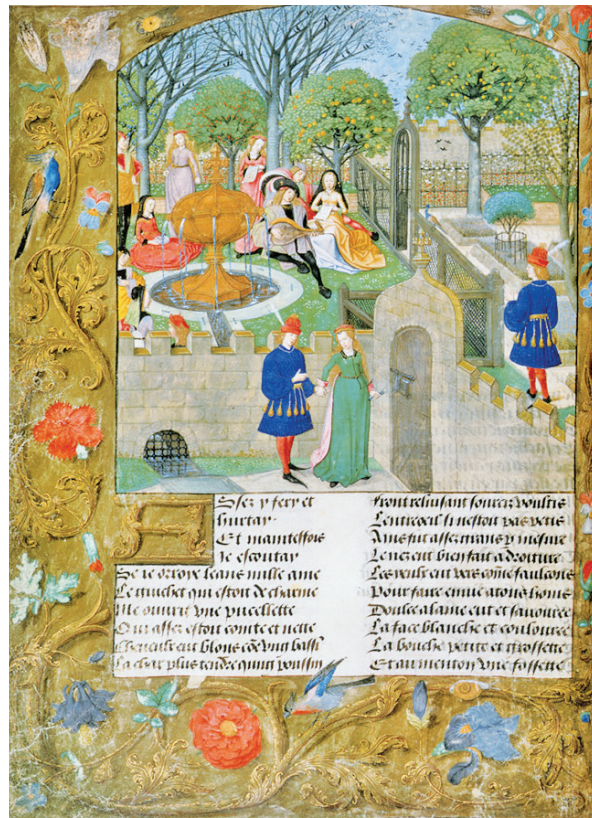 Assez y fery et
hurtay
Et maintesfois
Je escoutay
Se ie orroye leans nulle ame
Le guichet qui estoit de charme
Me ouurit vne pucellette
Qui assez estoit cointe et nette
Cheueulx eut blons cõe vng bassĩ
La char plus tendre qung poussin
Front reluisant sourcis voultis
Lentreoeil si nestoit pas petis
Ains fut assez grans p mesure
Le nez eut bien fait a droiture
Les yeulx eut vers cõme faulcons
Pour faire enuie a tous homs
Doulce alaine eut et sauouree
La face blanche et coulouree
La bouche petite et grossette
Et au menton vne fossette